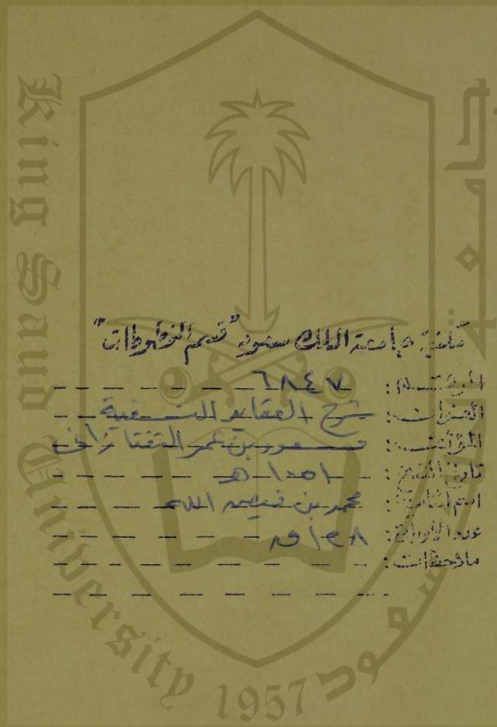 King Saud University
1957
مكتبة جامعة الملك سعود "قسم المخطوطات"
الرقـــم: ٦٨٤٧
العنوان: شرح العقايد النسفية
المؤلف: مسعود بن عمر التفتازاني
تاريخ النسخ: ١٠٥١ هـ
اسم الناسخ: محمد بن فيض الله
عدد الأوراق: ١٢٨ ق
ملاحظات: